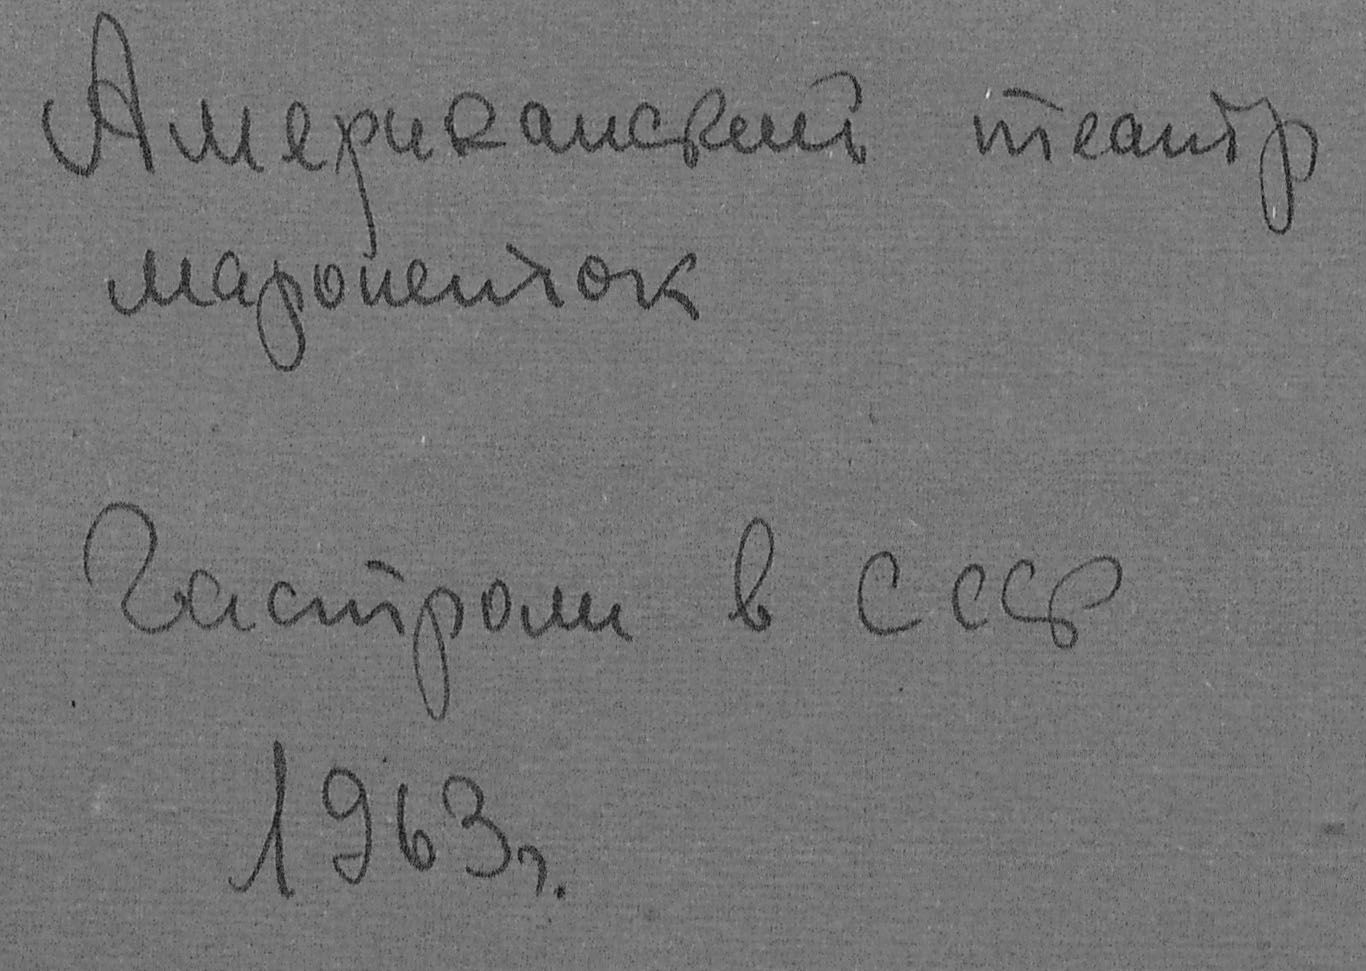 Американский театр
марионеток
Гастроли в СССР
1963г.